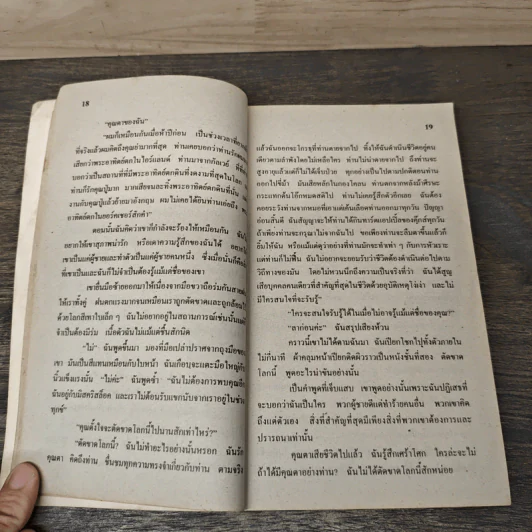 18
"คุณตาของฉัน"
"ผมก็เหมือนกันเมื่อห้าปีก่อน เป็นช่วงเวลาที่
ที่จริงแล้วผมคิดถึงคุณย่ามากที่สุด ท่านเคยบอกว่าท่าน
เสียกว่าพระอาทิตย์ตกในไอร์แลนด์ ท่านมาจากกัลเวย์
บอกว่าเป็นสถานที่ที่มีพระอาทิตย์ตกดินงดงามที่สุดในโลก
ท่านก็รักคุณปู่มาก มากเสียจนละทิ้งพระอาทิตย์ตกดินที่นั่น
งานกับคุณปู่แล้วย้ายมาอังกฤษ ผมไม่เคยได้ยินท่านเอ่ยถึง
อาทิตย์ตกในยอร์คเชอร์สักคำ"
ตอนนั้นฉันคิดว่าเขาก็กำลังจะร้องไห้เหมือนกัน ฉัน
อยากให้เขาสุภาพน่ารัก หรือเดาความรู้สึกของฉันได้
เขาเป็นแค่ผู้ชายและทำตัวเป็นแค่ผู้ชายคนหนึ่ง ซึ่งเมื่อนั้นก็
ที่เขาเป็นและฉันก็ไม่จำเป็นต้องรู้แม้แต่ชื่อของเขา
เขายื่นมือจ้ำออกมาให้เนื่องจากมือขวาถือร่มกันสายฝน
ให้เราทั้งคู่ ฝนตกแรงมากจนเหมือนเราถูกตัดขาดและถูกล้อม
ด้วยโลกสีเทาใบเล็ก ๆ ฉันไม่อยากอยู่ในสถานการณ์เช่นนั้น
จำเป็นต้องมีร่ม เนื้อตัวฉันไม่แม้แต่ชื้นสักนิด
"ไม่" ฉันพูดขึ้นมา มองที่มือเปล่าปราศจากถุงมือของ
เขา มันเป็นสีแทนเหมือนกับใบหน้า ฉันเกือบจะแตะมือใหญ่
นิ้วแข็งแรงนั้น "ไม่ค่ะ" ฉันพูดซ้ำ "ฉันไม่ต้องการพบคุณอีก
ฉันอยู่กับมิสคริสล็อค และเราไม่ต้อนรับแขกนับจากเราอยู่ในช่วง
ทุกข์"
"คุณตั้งใจจะตัดขาดโลกนี้ไปนานสักเท่าไหร่?"
"ตัดขาดโลกนี้? ฉันไม่ทำอะไรอย่างนั้นหรอก ฉันรัก
คุณตา คิดถึงท่าน ชื่นชมทุกความทรงจำเกี่ยวกับท่าน ตามจริง
19
แล้วฉันออกจะโกรธที่ท่านตายจากไป ทิ้งให้ฉันดำเนินชีวิตอยู่คน
เดียวตามลำพังโดยไม่เหลือใคร ท่านไม่น่าตายจากไป ถึงท่านจะ
สูงอายุแล้วแต่ก็ไม่ได้เจ็บป่วย ทุกอย่างเป็นไปตามปกติตอนท่าน
ออกไปขี่ม้า มันเสียหลักในกองโคลน ท่านตกจากหลังม้าศีรษะ
กระแทกต้นโอ๊กหมดสติไป ท่านไม่เคยรู้สึกตัวอีกเลย ฉันต้อง
คอยระวังท่านจากหมอที่หาแต่คั้นเลือดท่านออกมาทุกวัน ปัญญา
อ่อนสิ้นดี ฉันสัญญาจะให้ท่านได้กินทาร์ตแอปเปิ้ลของคุ๊กส์ทุกวัน
ถ้าเพียงท่านจะกรุณาไม่จากฉันไป ขอเพียงท่านจะลืมตาขึ้นแล้วก็
ยิ้มให้ฉัน หรือแม้แต่ดุว่าอย่างที่ท่านมักจะทำเช่า ๆ กับการหัวเราะ
แต่ท่านก็ไม่ฟื้น ฉันไม่อยากจะยอมรับว่าชีวิตต้องดำเนินต่อไปตาม
วิถีทางของมัน โดยไม่หวนนึกถึงความเป็นจริงที่ว่า ฉันได้สูญ
เสียบุคคลคนเดียวที่สำคัญที่สุดในชีวิตด้วยอุบัติเหตุโง่เง่า และไม่
มีใครสนใจที่จะรับรู้"
"ใครจะสนใจรับรู้ได้ในเมื่อไม่อาจรู้แม้แต่ชื่อของคุณ?"
"ลาก่อนค่ะ" ฉันสรุปเสียงห้วน
คราวนี้เขาไม่ได้ตามฉันมา ฉันเปียกโชกไปทั้งตัวภายใน
ไม่กี่นาที ผ้าคลุมหน้าเปียกติดผิวราวเป็นหนังชั้นที่สอง ตัดขาด
โลกนี้ พูดอะไรน่าขันอย่างนั้น
เป็นคำพูดที่เจ็บแสบ เขาพูดอย่างนั้นเพราะฉันปฏิเสธที่
จะบอกว่าฉันเป็นใคร พวกผู้ชายดีแต่ทำร้ายคนอื่น พวกเขาคิด
ถึงแต่ตัวเอง สิ่งที่สำคัญที่สุดมีเพียงสิ่งที่พวกเขาต้องการและ
ปรารถนาเท่านั้น
คุณตาเสียชีวิตไปแล้ว ฉันรู้สึกเศร้าโศก ใครล่ะจะไม่
ถ้าได้มีคุณตาอย่างท่าน? ฉันไม่ได้ตัดขาดโลกนี้สักหน่อย